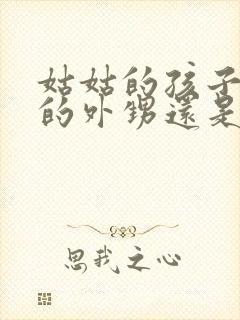 姑姑的孩子
的外甥還是
思我之心